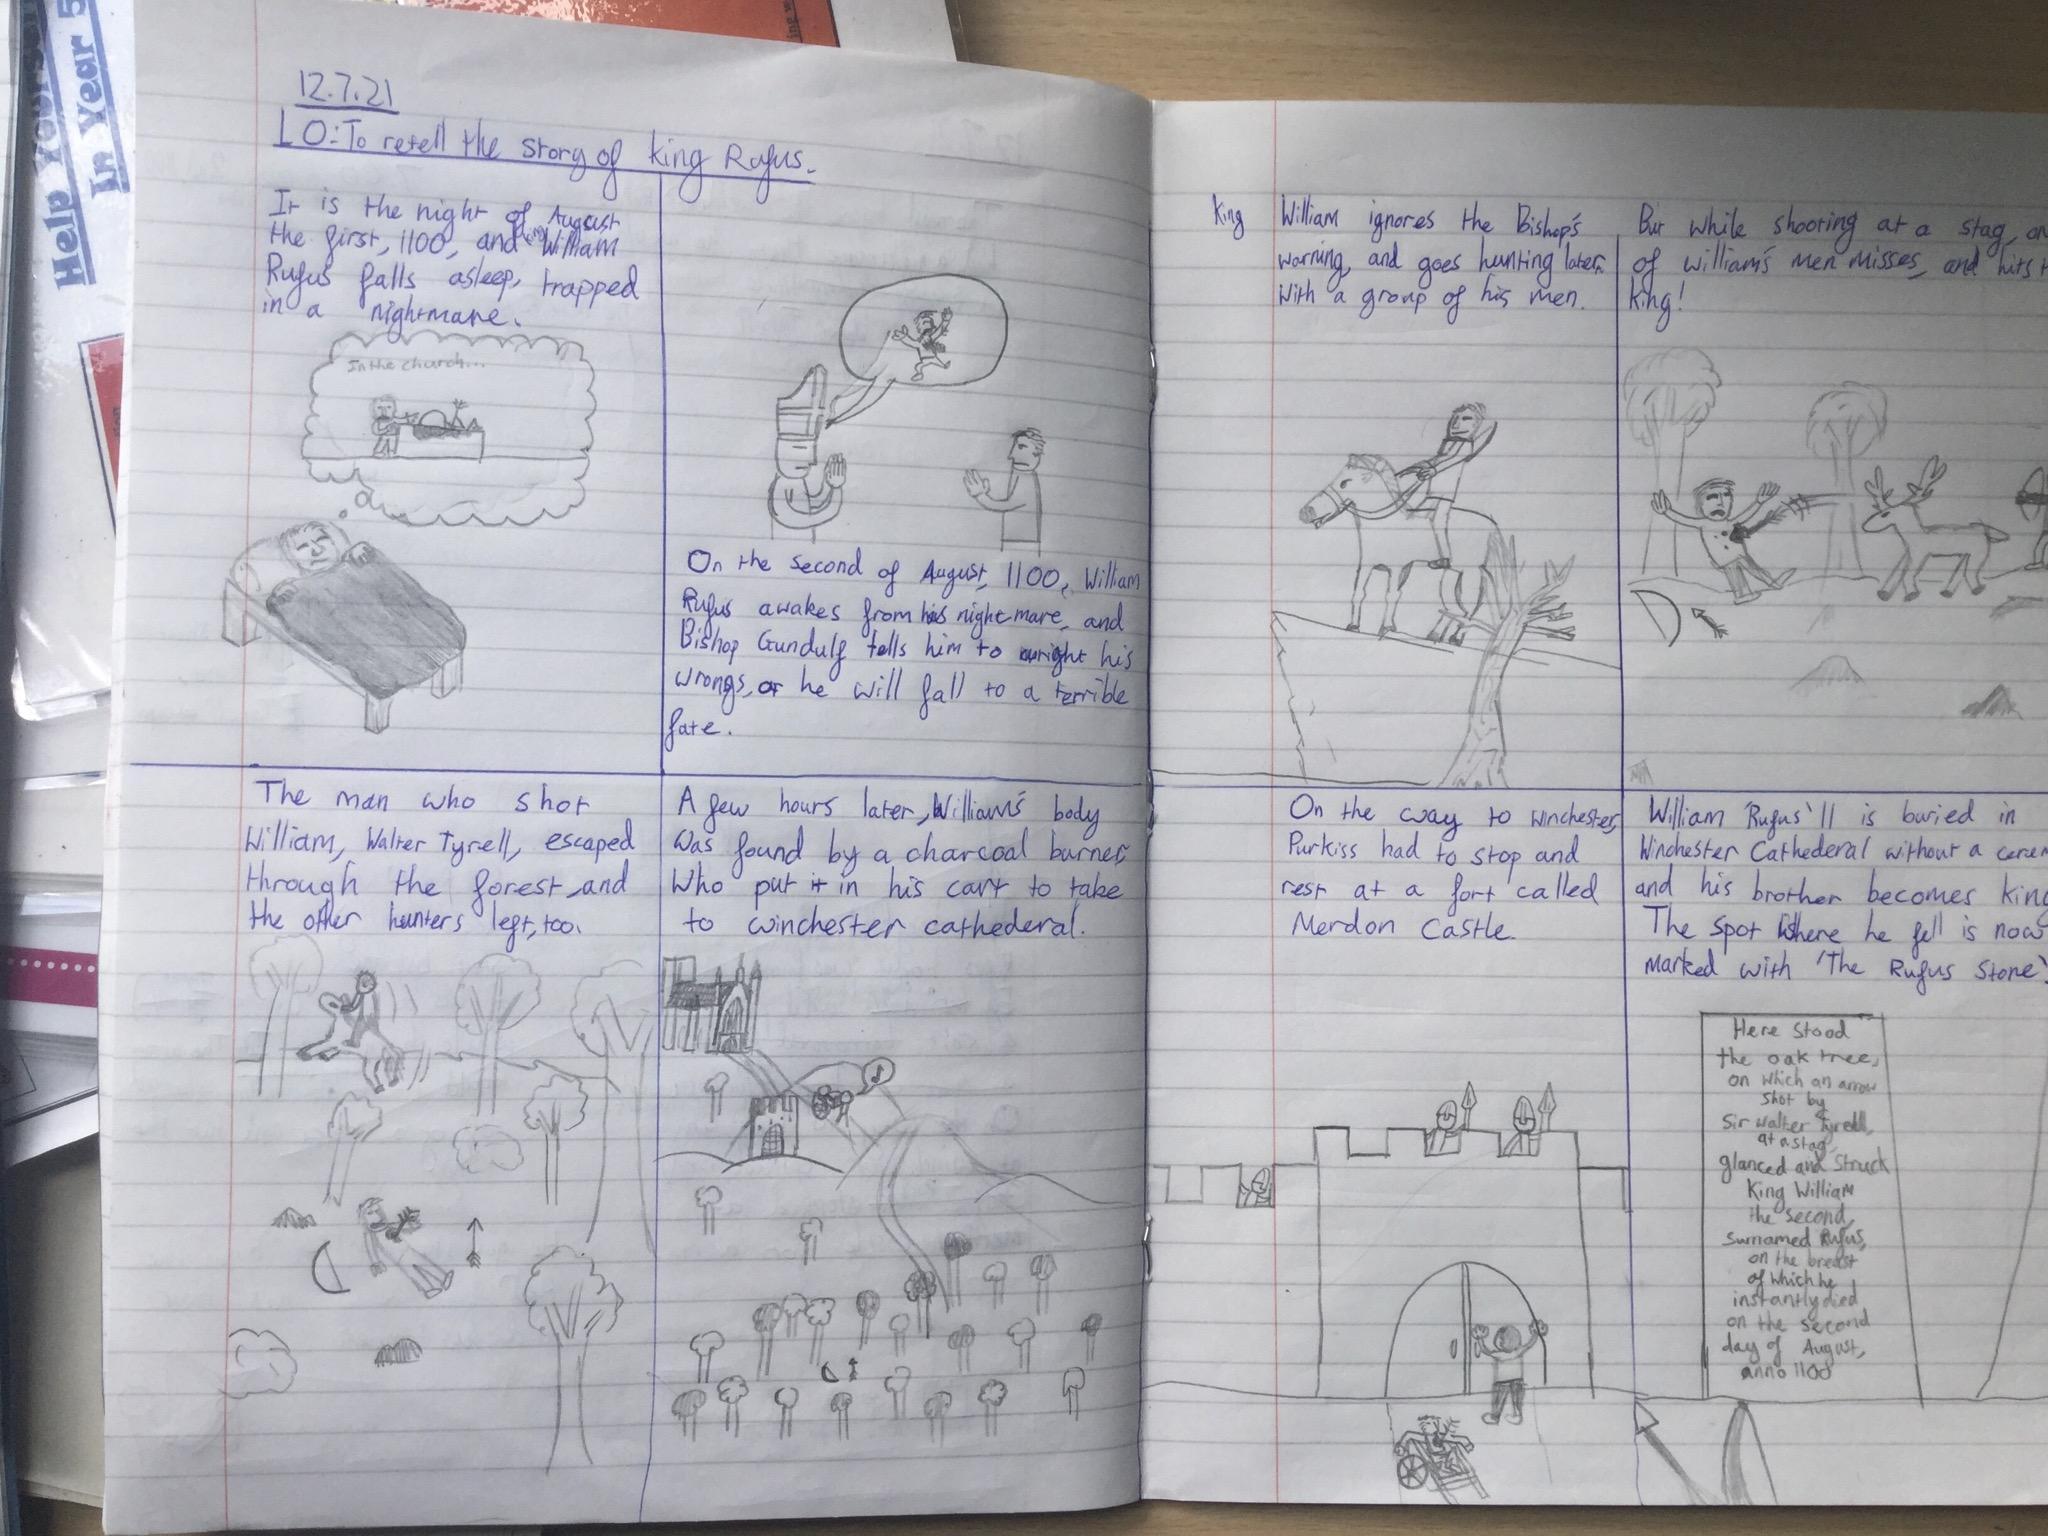 Help
In Year 5
12.7.21
LO: To retell the story of king Rufus.
It is the night of August
the first, 1100, and king William
Rufus falls asleep, trapped
in a nightmare.
In the church...
On the second of August, 1100, William
Rufus awakes from his nightmare, and
Bishop Gundulf tells him to right his
wrongs, or he will fall to a terrible
fate.
king William ignores the Bishop's
warning, and goes hunting later
with a group of his men.
But while shooting at a stag, on
of William's men misses, and hits t
king!
The man who shot
William, Walter Tyrell, escaped
through the forest, and
the other hunters left, too.
A few hours later, William's body
was found by a charcoal burner,
who put it in his cart to take
to winchester cathederal.
On the way to winchester,
Purkiss had to stop and
rest at a fort called
Merdon Castle.
William 'Rufus' II is buried in
Winchester Cathederal without a cerem
and his brother becomes king
The spot where he fell is now
marked with 'The Rufus Stone'.
Here stood
the oak tree,
on which an arrow
shot by
Sir walter Tyrell,
at a stag,
glanced and struck
King William
the second,
surnamed Rufus,
on the breast
of which he
instantly died
on the second
day of August,
anno 1100